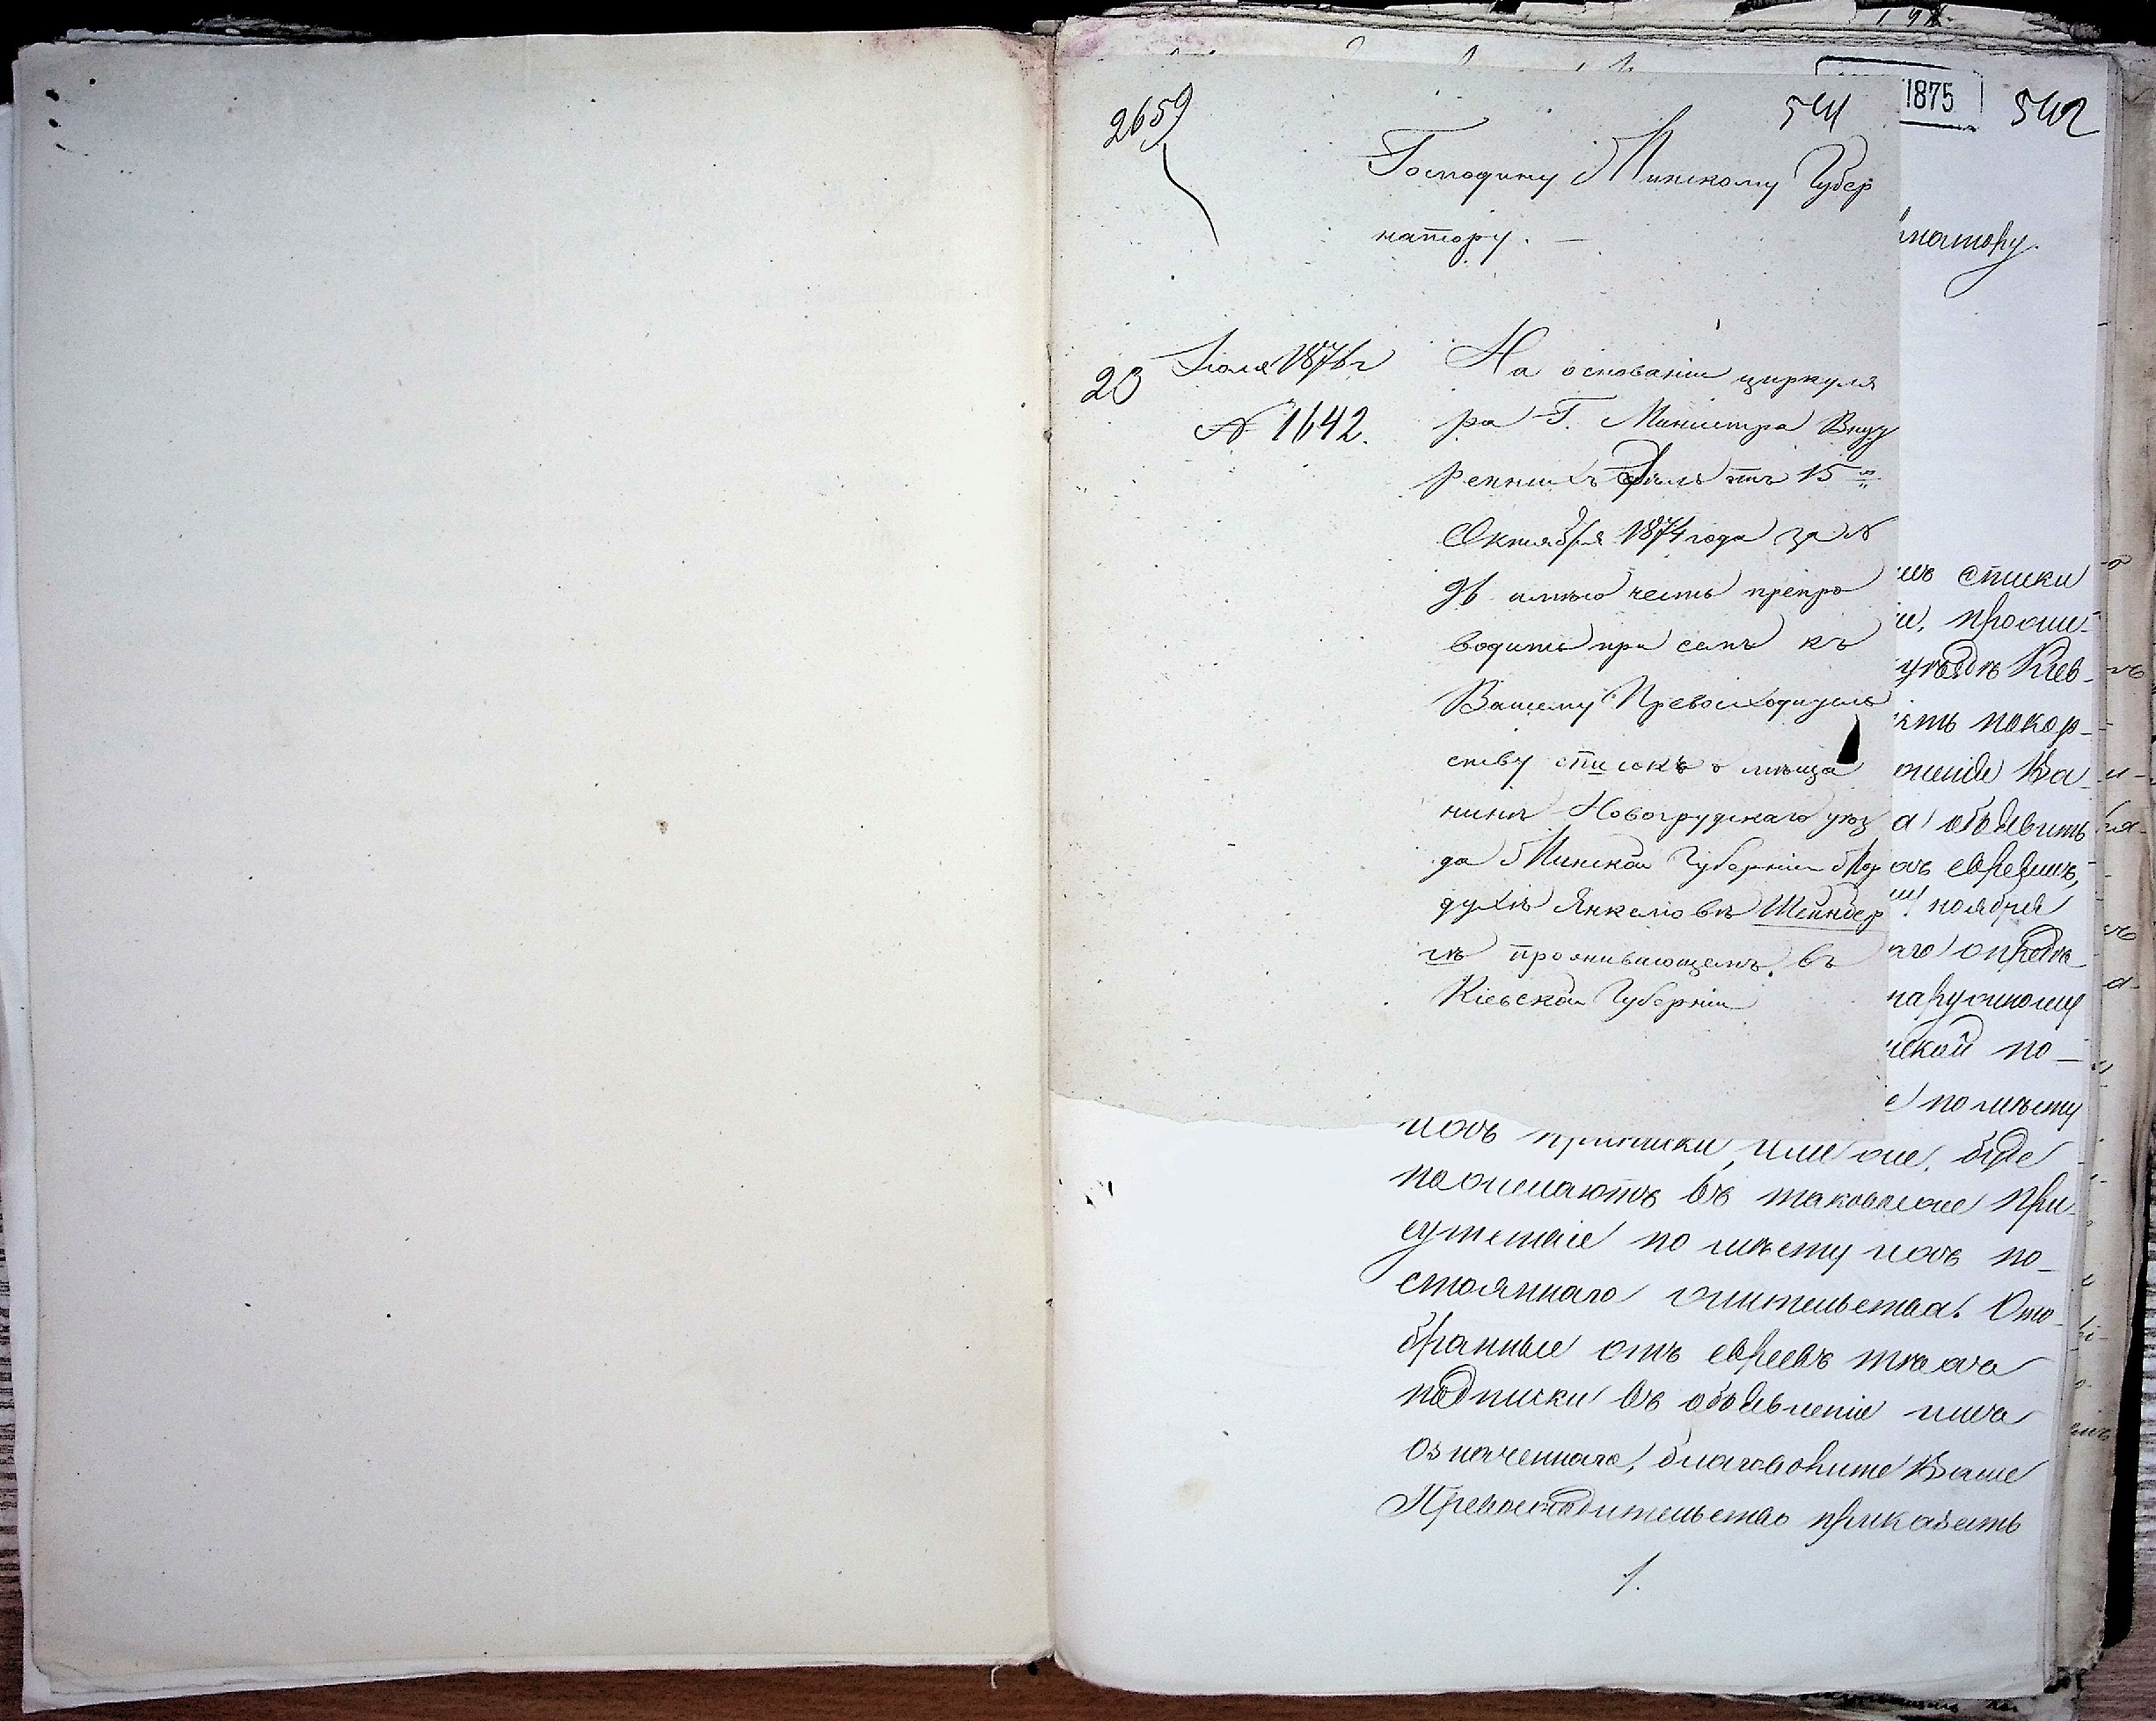 2659
541
1875
542
Господину Минскому Губер
натору. —
20 Іюля 1876 г
№ 1642.
На основаніи циркуля
ра Г. Министра Внут
реннихъ Дѣлъ отъ 15 го
Октября 1874 года за №
96 имѣю честь препро
водить при семъ къ
Вашему Превосходитель
ству списокъ о мѣща
нинѣ Новогрудскаго уѣз
да Минской Губерніи Мор
духѣ Янкелювѣ Шейнбер
гѣ проживающемъ въ
Кіевской Губерніи
натору.
списки
уѣздѣ Кіев-
покор-
Ва
а объявить
евреямъ,
ноября
аго опредѣ
нарушающ
ской по-
по мѣсту
ихъ приписки, или же, буде
пожелаютъ въ таковыхъ при
сутствіе по мѣсту ихъ по-
стояннаго жительства. Ото-
бранные отъ евреевъ тѣхъ
подписки въ объявленіи имъ
означеннаго, благоволите Ваше
Превосходительство приказать
1.